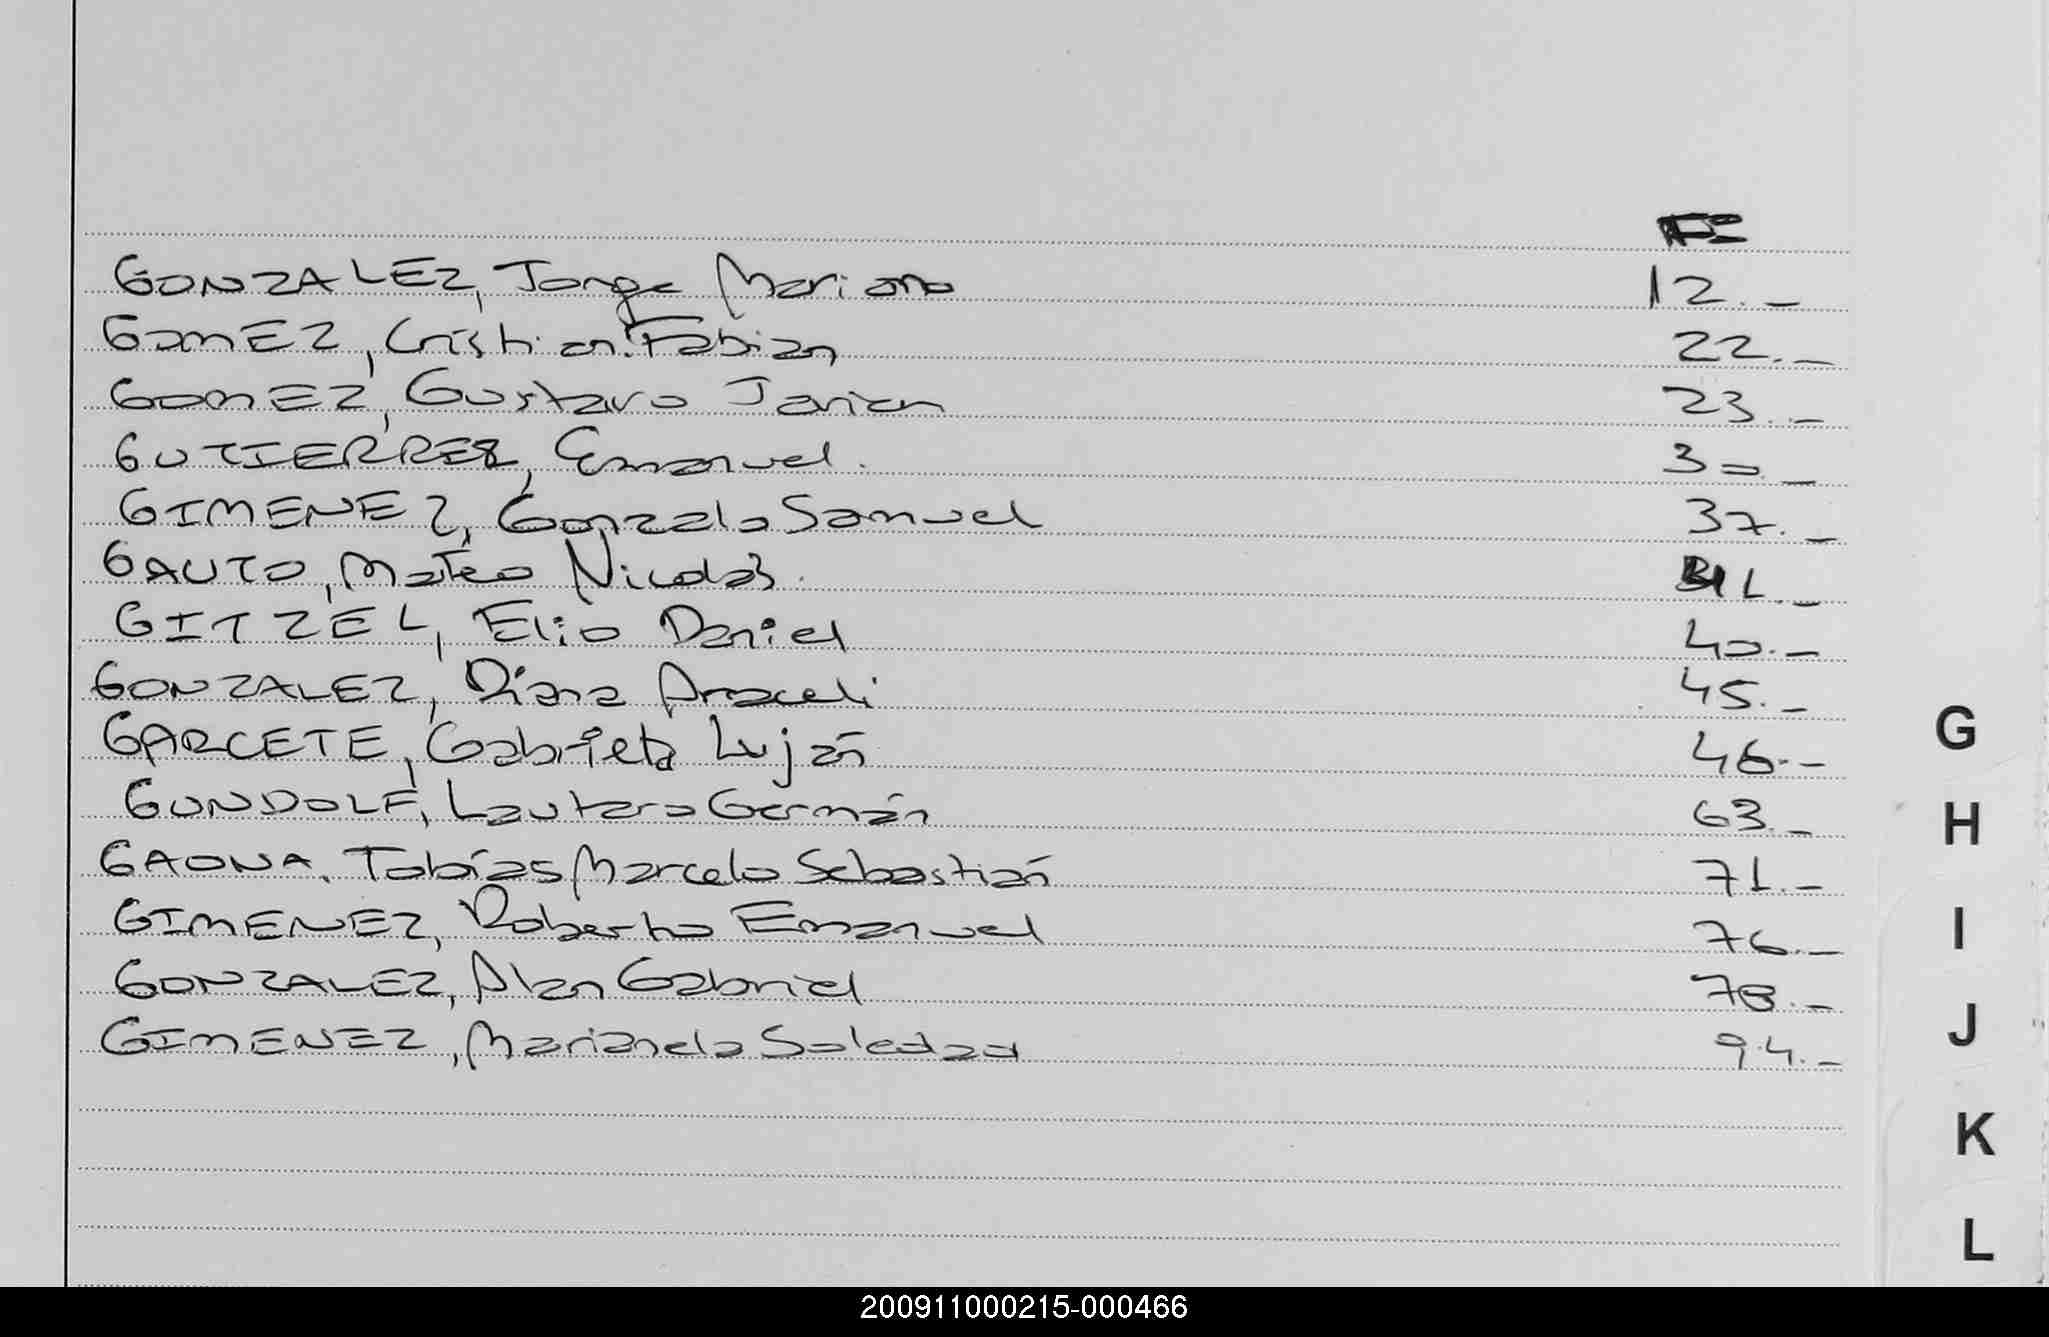 Fº
GONZALEZ, Jorge Mariano 12.-
GOMEZ, Cristian Fabian 22.-
GOMEZ, Gustavo Javier 23.-
GUTIERREZ, Emanuel. 30.-
GIMENEZ, Gonzalo Samuel 37.-
GAUTO, Mateo Nicolás.
GITZEL, Elio Daniel 40.-
GONZALEZ, Diana Araceli 45.-
GARCETE, Gabriela Luján 46.-
GUNDOLF, Lautaro Germán 63.-
GAONA, Tobías Marcelo Sebastián 71.-
GIMENEZ, Roberto Emanuel 76.-
GONZALEZ, Alan Gabriel 78.-
GIMENEZ, Marianela Soledad 94.-
G
H
I
J
K
L
200911000215-000466